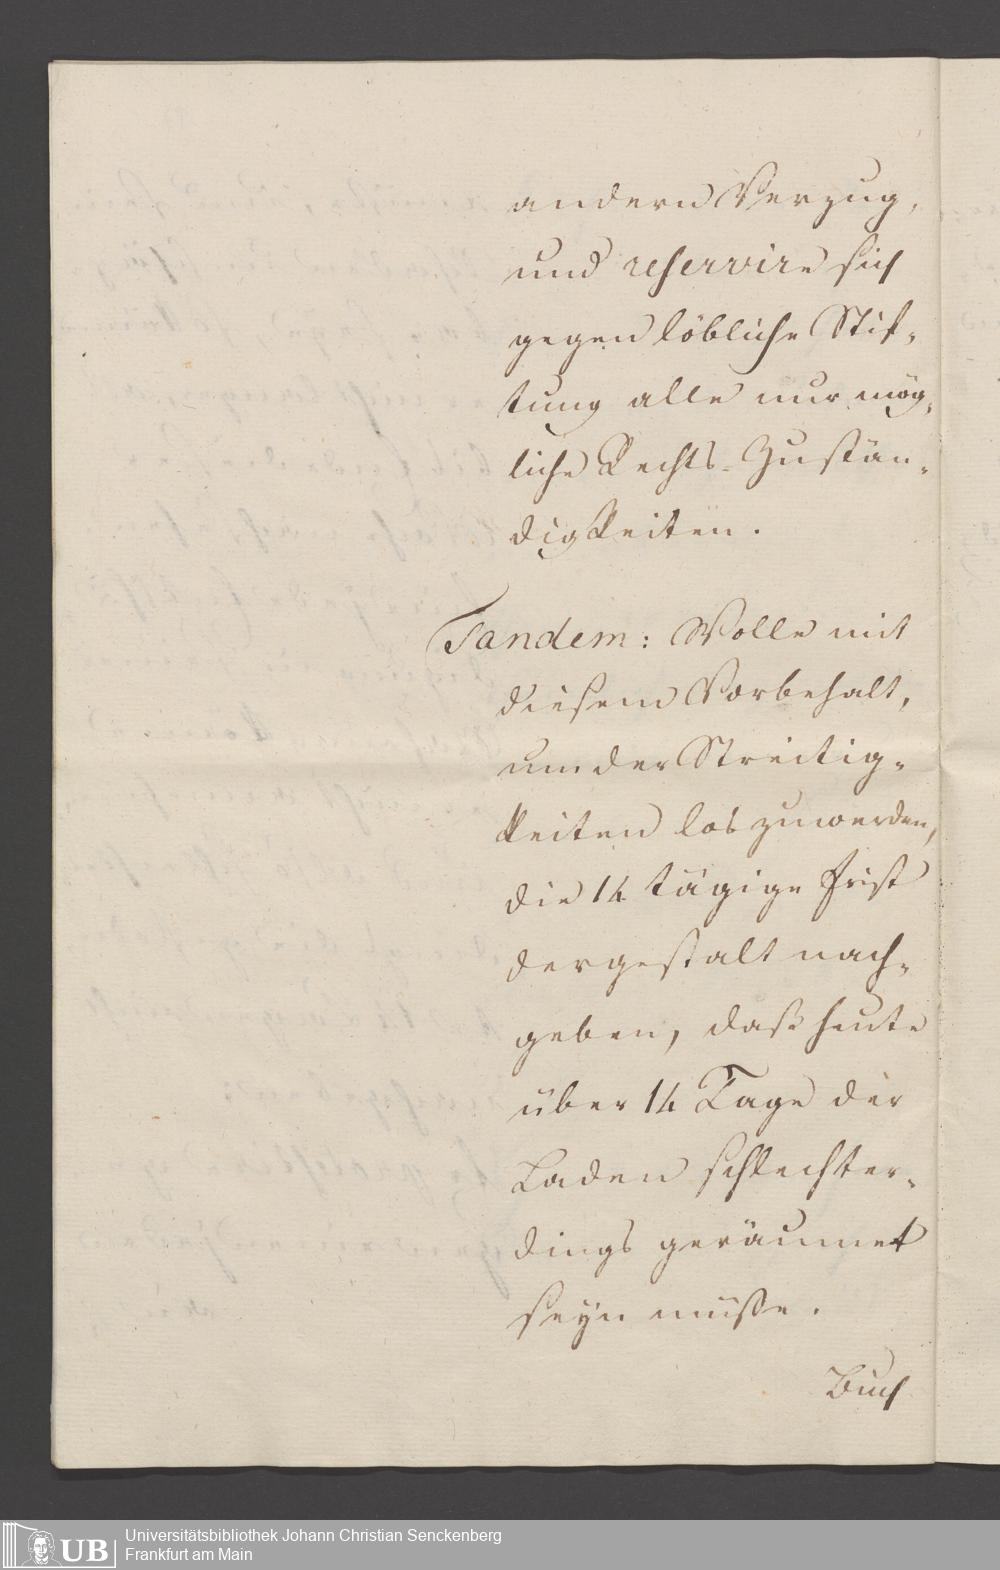 andern Verzug,
und reservire sich
gegen löbliche Stif-
tung alle nur mög-
liche Rechts-Zustän-
digkeiten.
Tandem: Wolle mit
diesem Vorbehalt,
um der Streitig-
keiten los zuwerden,
die 14 tägige Frist
dergestalt nach-
geben, daß heute
über 14 Tage der
Laden schlechter-
dings geräumet
seyn müsse.
Buch
UB
Universitätsbibliothek Johann Christian Senckenberg
Frankfurt am Main